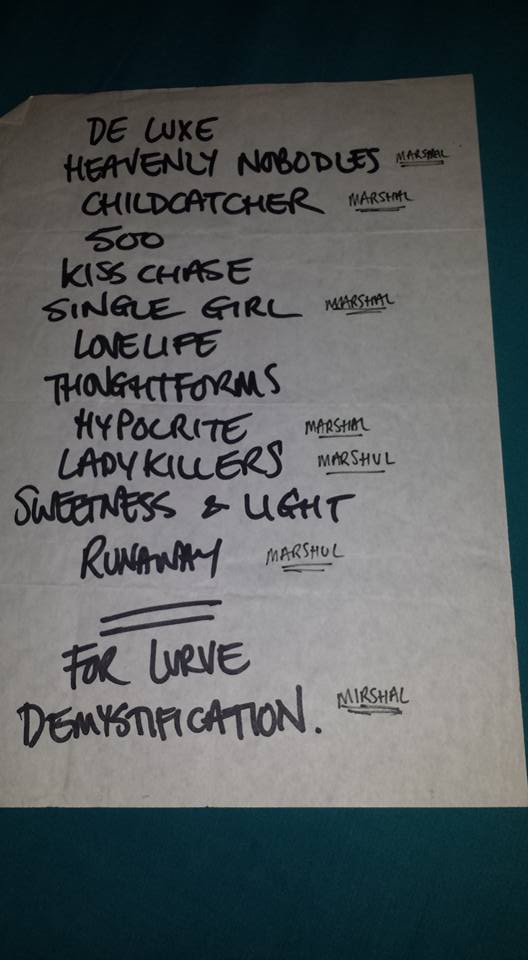 DE LUXE
HEAVENLY NOBODIES MARSHAL
CHILDCATCHER MARSHAL
500
KISS CHASE
SINGLE GIRL MARSHAL
LOVELIFE
THOUGHTFORMS
HYPOCRITE MARSHAL
LADYKILLERS MARSHUL
SWEETNESS & LIGHT
RUNAWAY MARSHUL
FOR LURVE
DEMYSTIFICATION. MIRSHAL